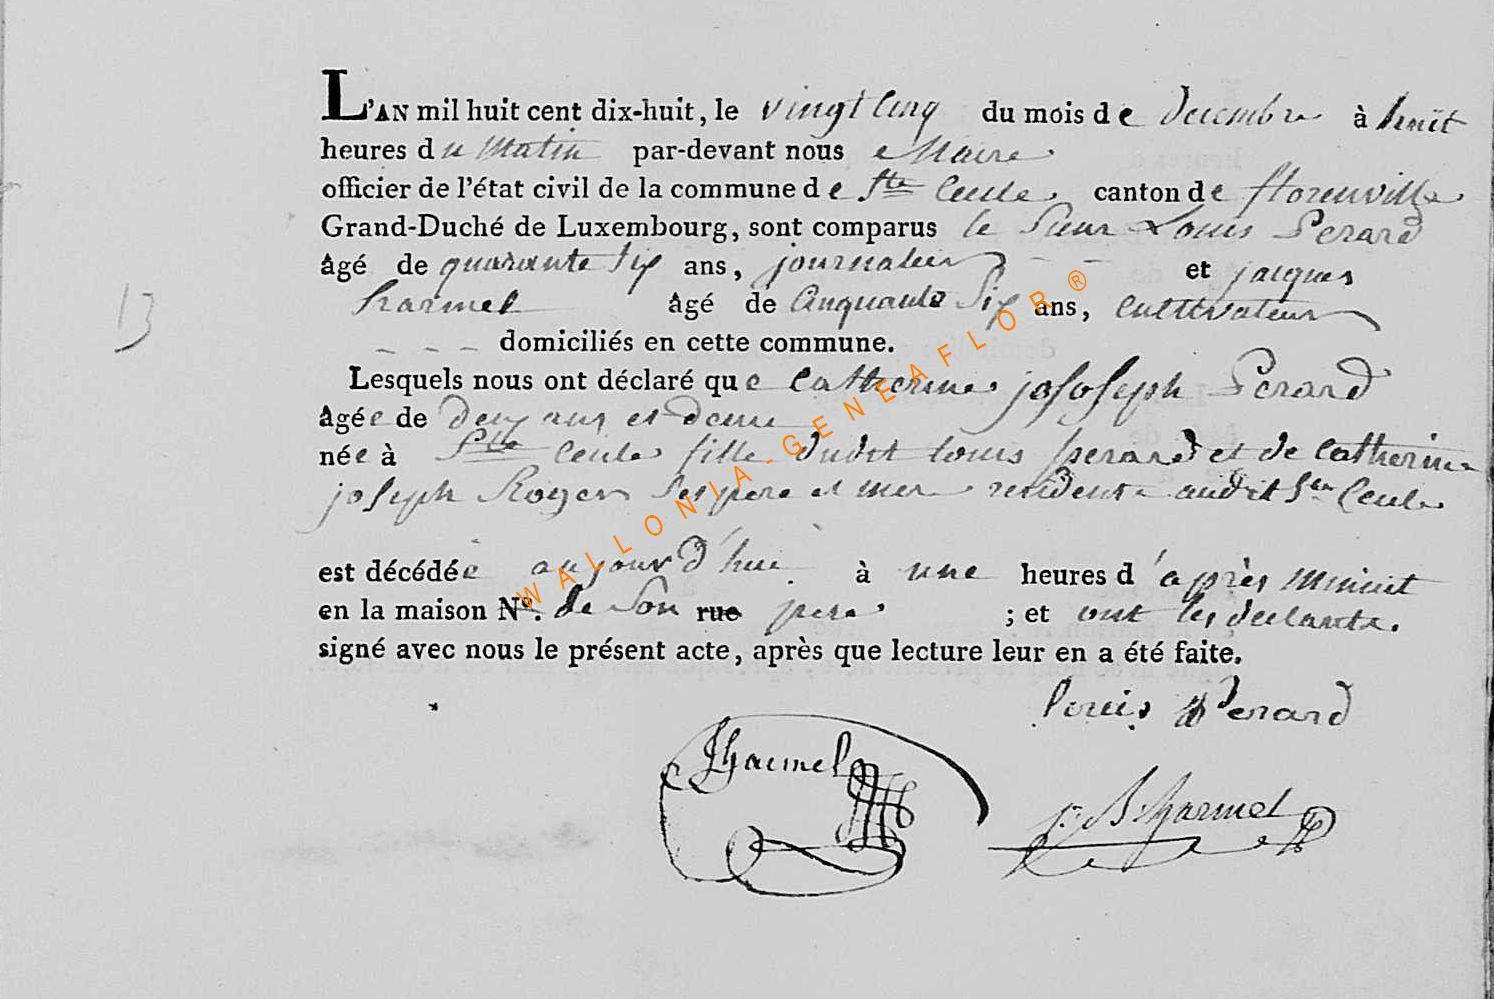 L'AN mil huit cent dix-huit, le vingt Cinq du mois de decembre à huit
heures du Matin par-devant nous Maire
officier de l'état civil de la commune de Ste Cecile canton de florenville
Grand-Duché de Luxembourg, sont comparus le Sieur Louis Perard
âgé de quarante six ans, journalier et jacques
harmel âgé de Cinquante Six ans, Cultivateur
13
domiciliés en cette commune.
Lesquels nous ont déclaré que Catherine Perard
âgée de deux ans et demi
née à Ste Cecile fille dudit Louis perard et de Catherine
joseph Rozer Ses pere et mere residents audit Cecile
est décédée aujourd'hui à une heures d'après minuit
en la maison N°. de Son rue pere ; et ont les declarants
signé avec nous le présent acte, après que lecture leur en a été faite.
louis Perard
JHarmel
Harmel
WALLONIA-GENEAFLOR®